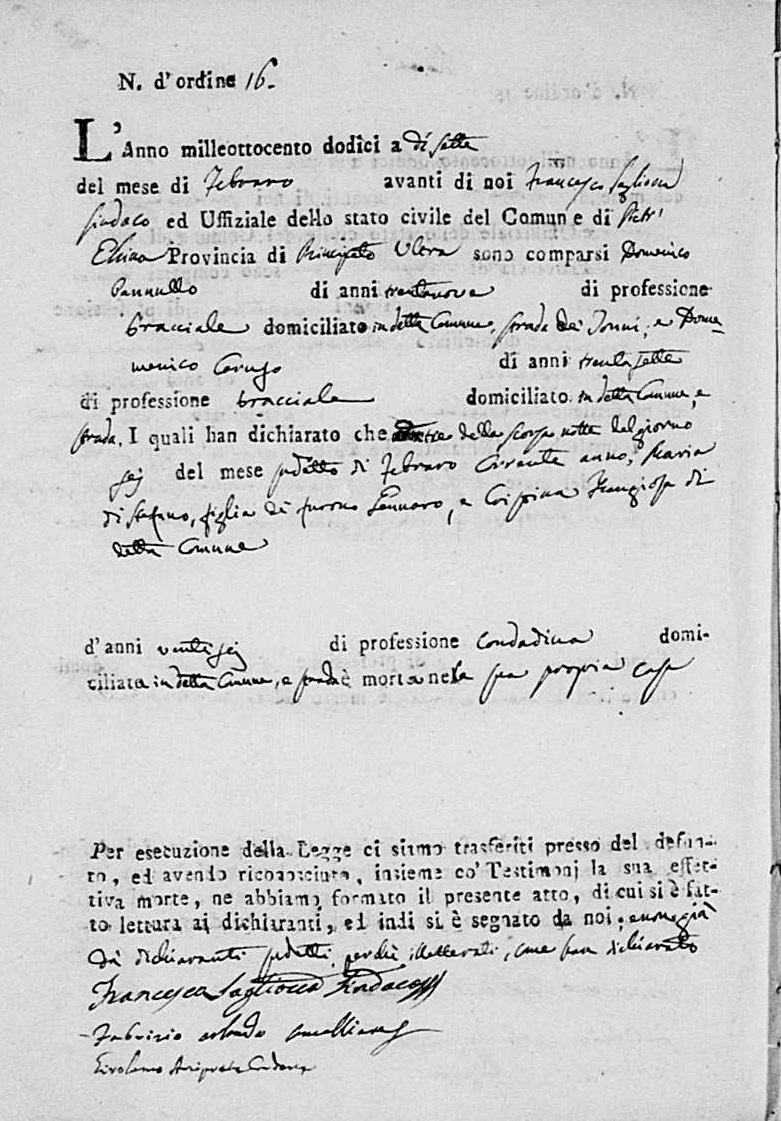 N. d'ordine 16.
L'Anno milleottocento dodici a dì sette
del mese di Febraro avanti di noi Francesco Sagliocca
Sindaco ed Uffiziale dello stato civile del Comune di Pietr'
Elcina Provincia di Principato Ulera sono comparsi Domenico
Pannullo di anni trentanove di professione
bracciale domiciliato in detta Comune, strada dei; e Dome=
menico Caruso di anni trentasette
di professione bracciale domiciliato in detta Comune, e
strada. I quali han dichiarato che della scorsa notte del giorno
sei del mese sudetto di Febraro corrente anno, Maria
di, figlia di furono Gennaro, e Crispina Frangiosa di
detta Comune
d'anni ventisei di professione condadina domi-
ciliata in detta Comune, e strada è morta nela sua propria casa
Per esecuzione della Legge ci siamo trasferiti presso del defun-
to, ed avendo riconosciuto, insieme co' Testimonj la sua effet-
tiva morte, ne abbiamo formato il presente atto, di cui si è fat-
to lettura ai dichiaranti, ed indi si è segnato da noi, e non già
da dichiaranti sudetti, perchè illetterati, come han dichiarato
Francesco Sagliocca Sindaco
Fabrizio Orlando
Girolamo